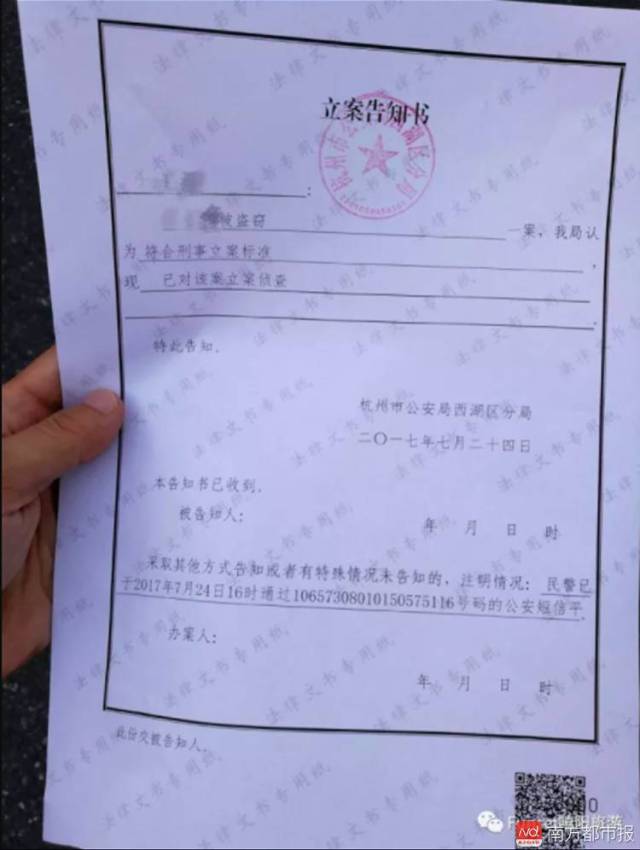 立案告知书
杭州市公安局西湖区分局
:
被盗窃 一案，我局认
为 符合刑事立案标准 ，
现 已对该案立案侦查
。
特此告知。
杭州市公安局西湖区分局
二〇一七年七月二十四日
本告知书已收到。
被告知人：
年 月 日 时
采取其他方式告知或者有特殊情况未告知的，注明情况：民警已
于2017年7月24日16时通过10657308010150575116号码的公安短信平
。
办案人：
年 月 日 时
此份交被告知人.
法律文书专用纸
南方都市报